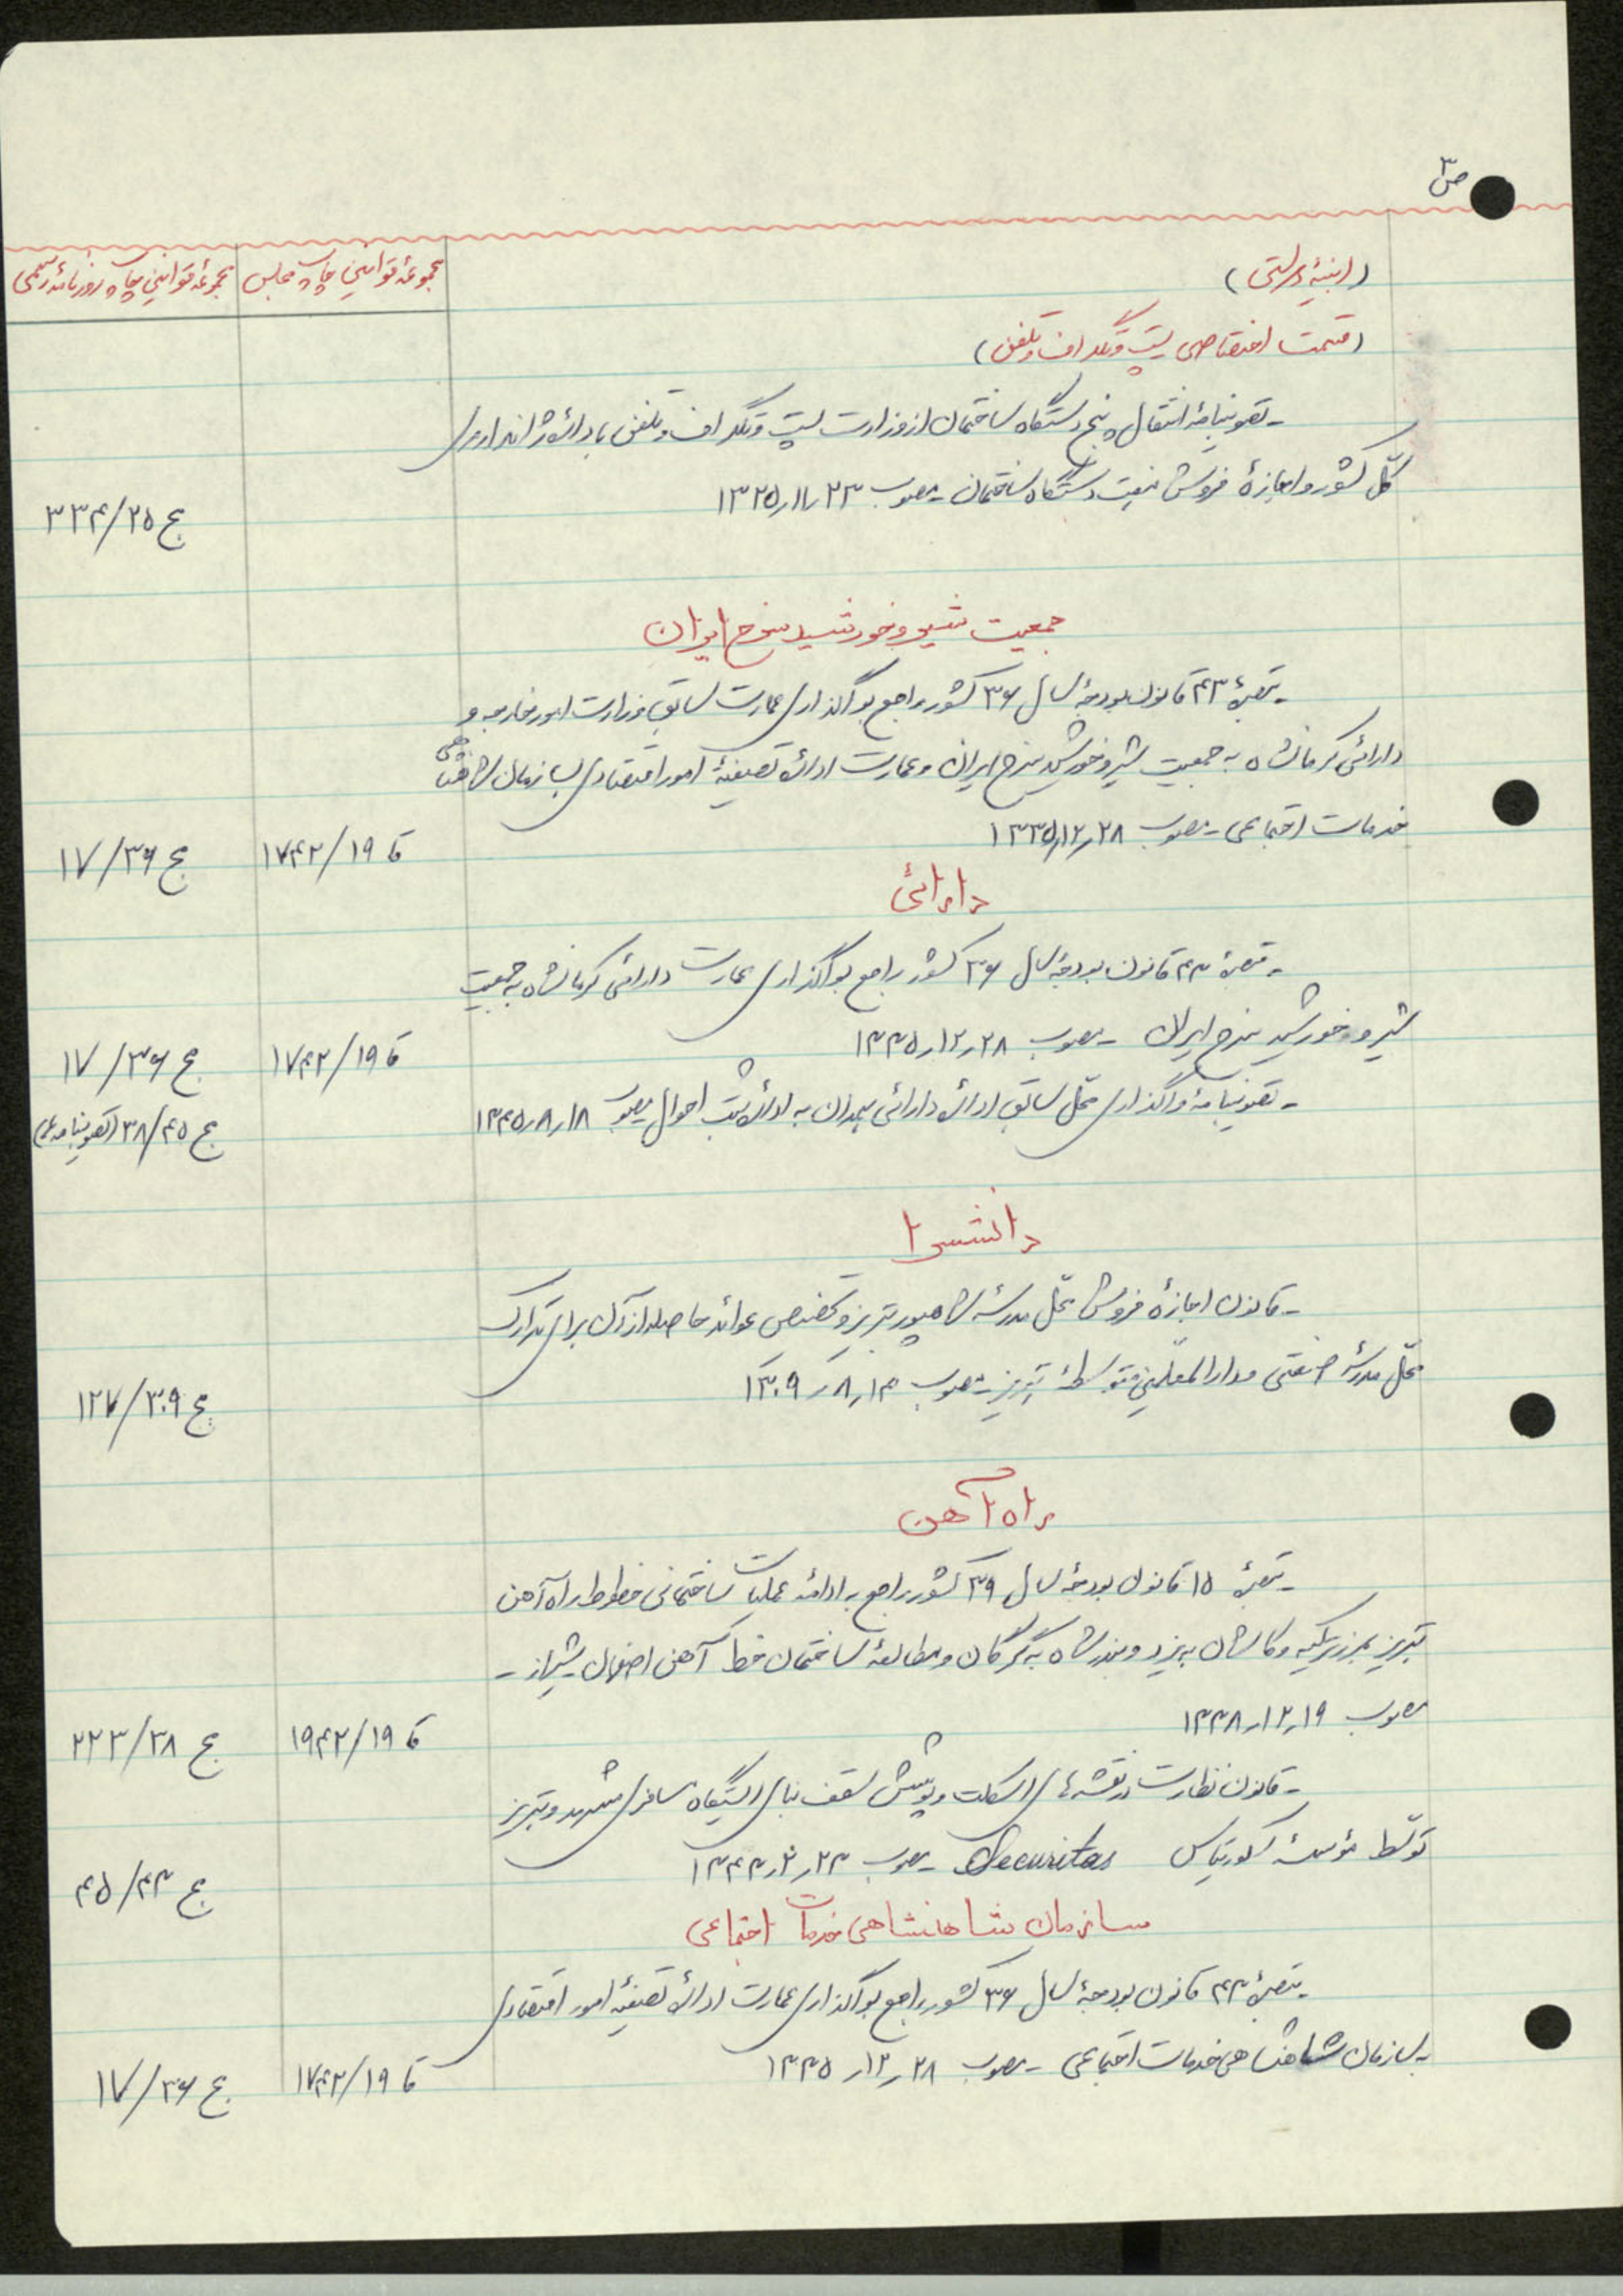 ص ۳
(ابنیهٔ دولتی)
مجموعهٔ قوانین چاپ مجلس
مجموعهٔ قوانین چاپ روزنامهٔ رسمی
(قسمت اختصاصی پست و تلگراف و تلفن)
- تصویبنامهٔ انتقال پنج دستگاه ساختمان از وزارت پست و تلگراف و تلفن به ادارهٔ ژاندارمری
کلّ کشور و اجازهٔ فروش دستگاه ساختمان - مصوب ۱۳۲۵٫۱۱٫۲۳
ج ۳۳۴/۲۵
جمعیت شیر و خورشید سرخ ایران
- تبصرهٔ ۴۳ قانون بودجهٔ سال ۳۶ کشور راجع بواگذاری عمارت سابق وزارت امور خارجه و
دارائی کرمانشاه به جمعیت شیر و خورشید سرخ ایران و عمارت ادارهٔ تصفیهٔ امور اقتصادی بسازمان شاهنشاهی
خدمات اجتماعی - مصوب ۱۳۳۵٫۱۲٫۲۸
قا ۱۷۴۲/۱۹
ج ۱۷/۳۶
دارائی
- تبصرهٔ ۴۳ قانون بودجهٔ سال ۳۶ کشور راجع بواگذاری عمارت دارائی کرمانشاه به جمعیت
شیر و خورشید سرخ ایران - مصوب ۱۳۳۵٫۱۲٫۲۸
قا ۱۷۴۲/۱۹
ج ۱۷/۳۶
- تصویبنامهٔ واگذاری محلّ سابق ادارهٔ دارائی همدان به ادارهٔ ثبت احوال مصوب ۱۳۴۵٫۸٫۱۸
ج ۳۸/۴۵ (تصویبنامه‌ها)
دانشسرا
- قانون اجازهٔ فروش محلّ مدرسهٔ شاهپور تبریز و تخصیص عوائد حاصله از آن برای تدارک
محلّ مدرسهٔ صنعتی و دارالمعلّمین متوسطهٔ تبریز - مصوب ۱۳۰۹٫۸٫۱۴
ج ۱۲۷/۳۰۹
راه آهن
- تبصرهٔ ۱۵ قانون بودجهٔ سال ۳۹ کشور راجع به ادامهٔ عملیات ساختمانی خطوط راه‌آهن
تبریز بمرز ترکیه و کاشان به یزد و بندرشاه به گرگان و مطالعهٔ ساختمان خط آهن اصفهان شیراز -
مصوب ۱۳۳۸٫۱۲٫۱۹
قا ۱۹۴۲/۱۹
ج ۲۲۳/۳۸
- قانون نظارت در نقشه‌های اسکلت و پوشش سقف بنای ایستگاه مسافری مشهد و تبریز
توسّط مؤسسهٔ سکوریتاس Securitas - مصوب ۱۳۴۳٫۲٫۲۳
ج ۴۵/۴۳
سازمان شاهنشاهی خدمات اجتماعی
- تبصرهٔ ۴۳ قانون بودجهٔ سال ۳۶ کشور راجع بواگذاری عمارت ادارهٔ تصفیهٔ امور اقتصادی
بسازمان شاهنشاهی خدمات اجتماعی - مصوب ۱۳۳۵٫۱۲٫۲۸
قا ۱۷۴۲/۱۹
ج ۱۷/۳۶